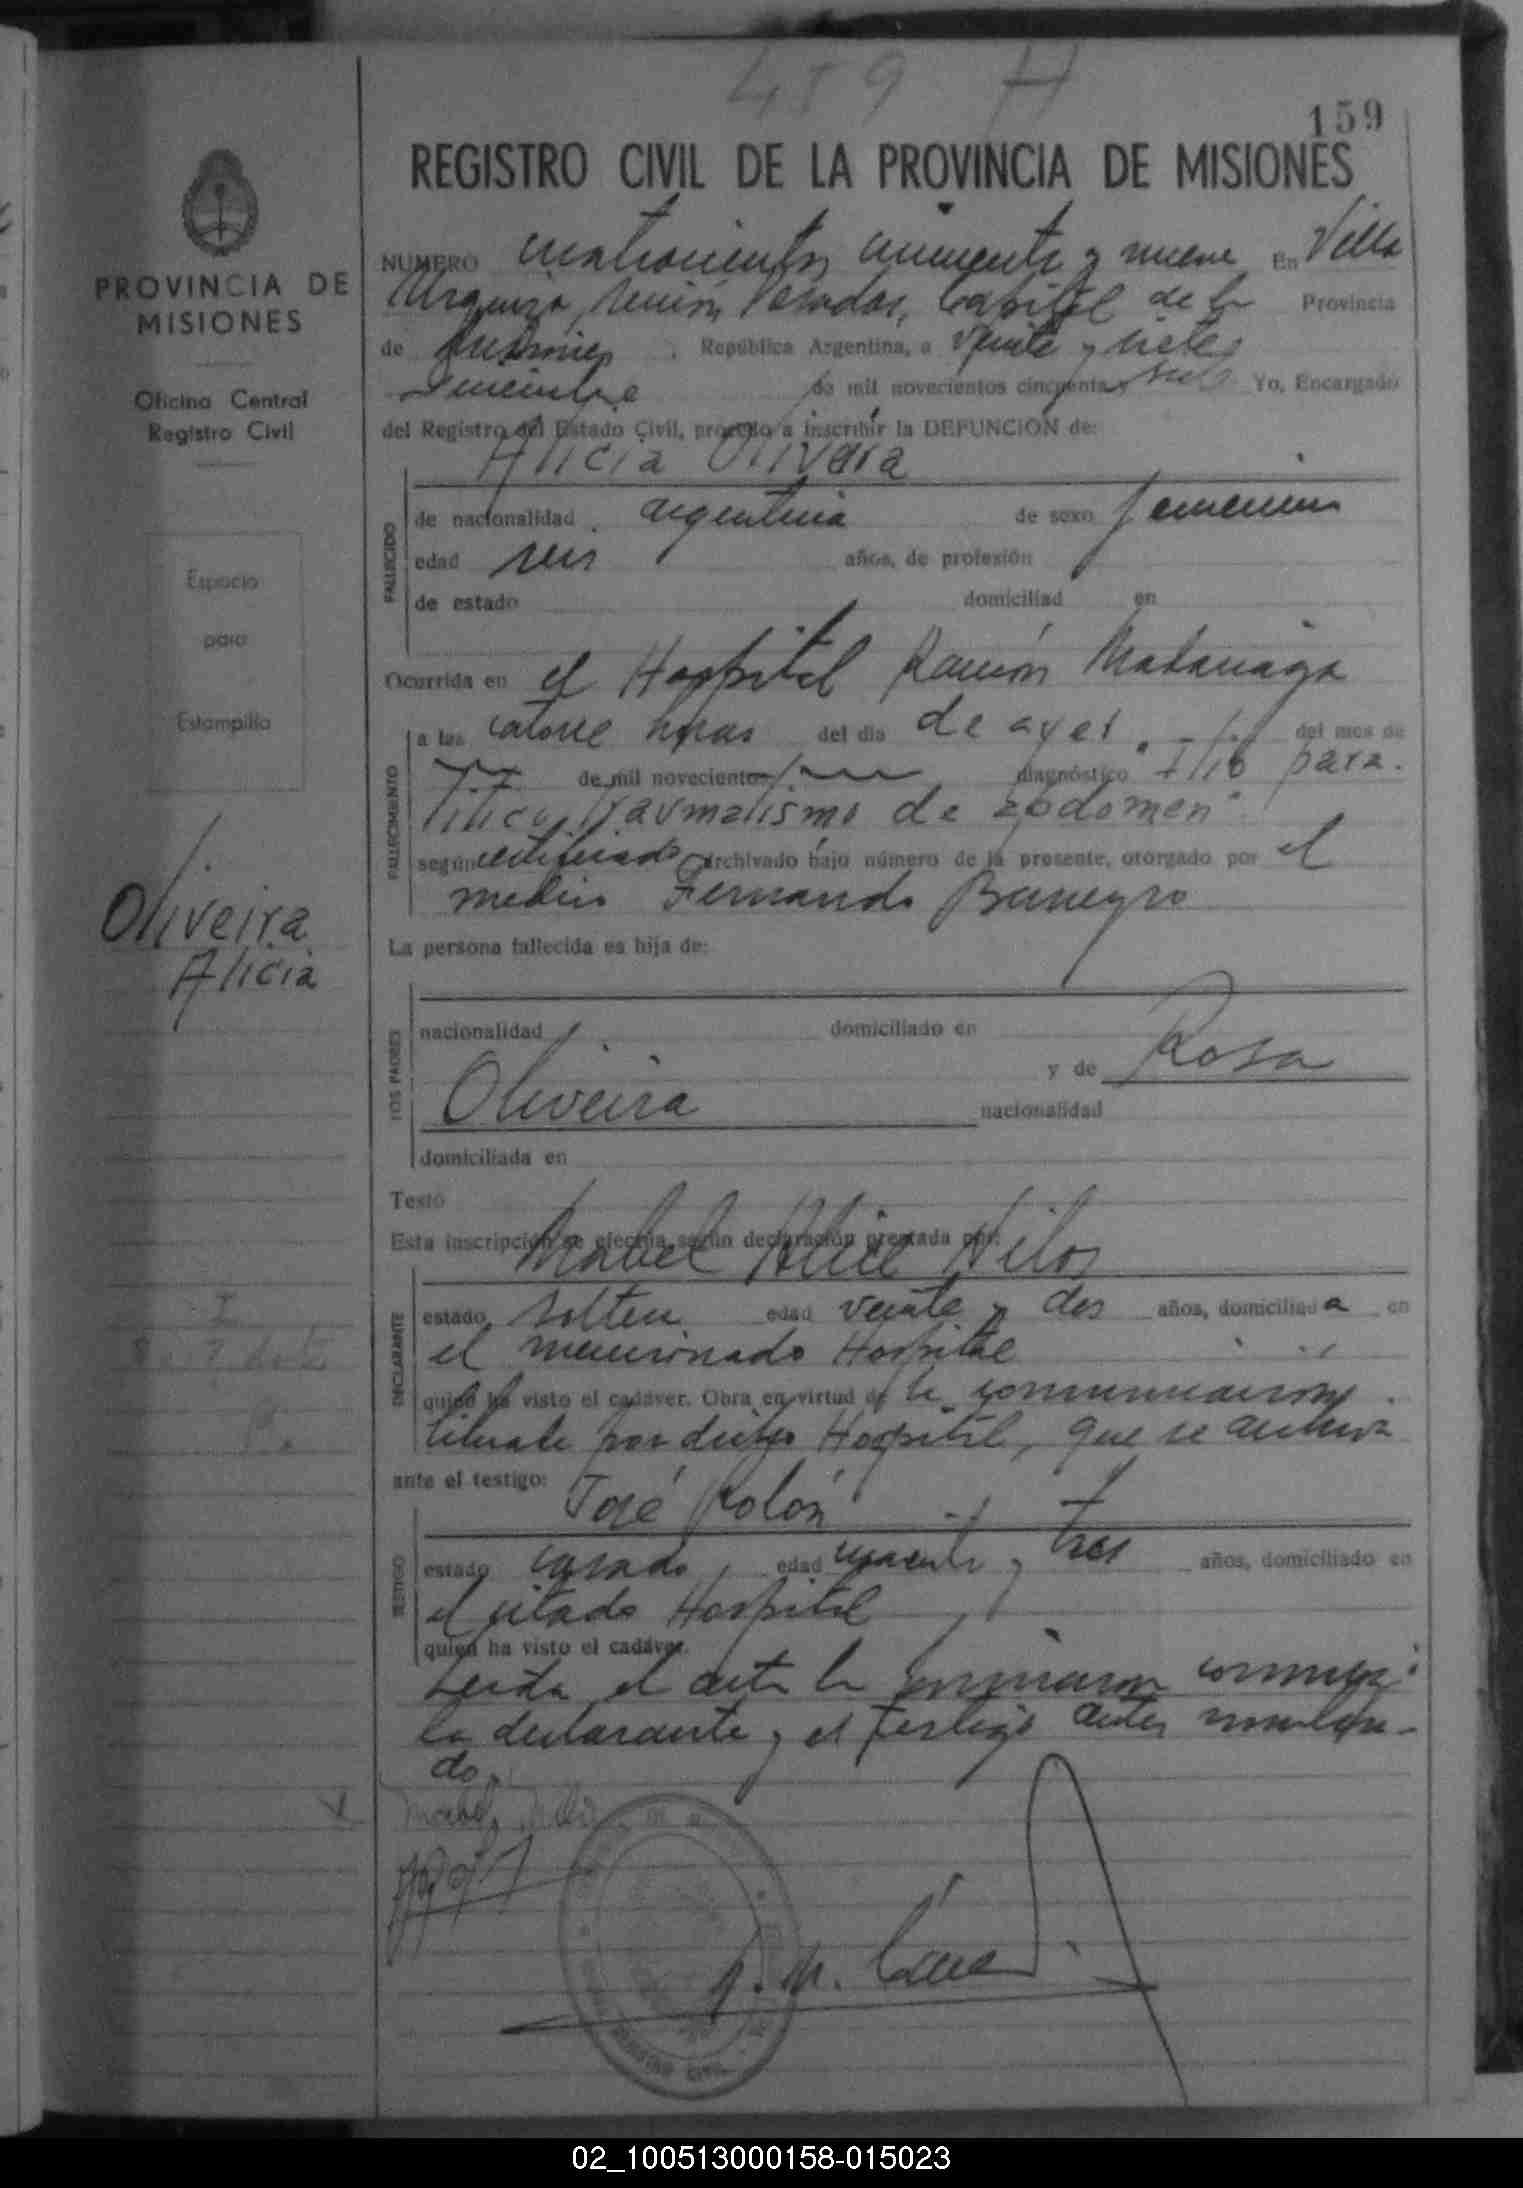 459 H
159
REGISTRO CIVIL DE LA PROVINCIA DE MISIONES
PROVINCIA DE
MISIONES
Oficina Central
Registro Civil
Espacio
para
Estampilla
Oliveira
Alicia
NUMERO cuatrocientos cincuenta y nueve En Villa
Urquiza, Posadas, Capital de la Provincia
de Misiones, República Argentina, a veinte y siete
de mil novecientos cincuenta y Yo, Encargado
del Registro del Estado Civil, procedo a inscribir la DEFUNCION de:
Alicia Olivera
FALLECIDO
de nacionalidad argentina de sexo femenino
edad seis años, de profesión
de estado domiciliad en
Ocurrida en el Hospital Ramón Madariaga
FALLECIMIENTO
a las catorce horas del dia de ayer del mes de
de mil novecientos diagnóstico para-
lítico, traumatismo de abdomen"
según certificado archivado bajo número de la presente, otorgado por el
médico Fernando
La persona fallecida es hija de:
LOS PADRES
nacionalidad domiciliado en
y de Rosa
Oliveira nacionalidad
domiciliada en
Testó
Esta inscripción se efectúa según declaración prestada por:
Mabel Alice Nilos
DECLARANTE
estado soltera edad veinte y dos años, domiciliada en
el mencionado Hospital
quien ha visto el cadáver. Obra en virtud de la comunicación
librada por dicho Hospital, que se archiva
ante el testigo:
José Rolón
TESTIGO
estado casado edad cuarenta y tres años, domiciliado en
el citado Hospital
quien ha visto el cadáver.
Leída el acta la firmaron conmigo
la declarante y el testigo antes nombra-
do.
REGISTRO CIVIL
02_100513000158-015023